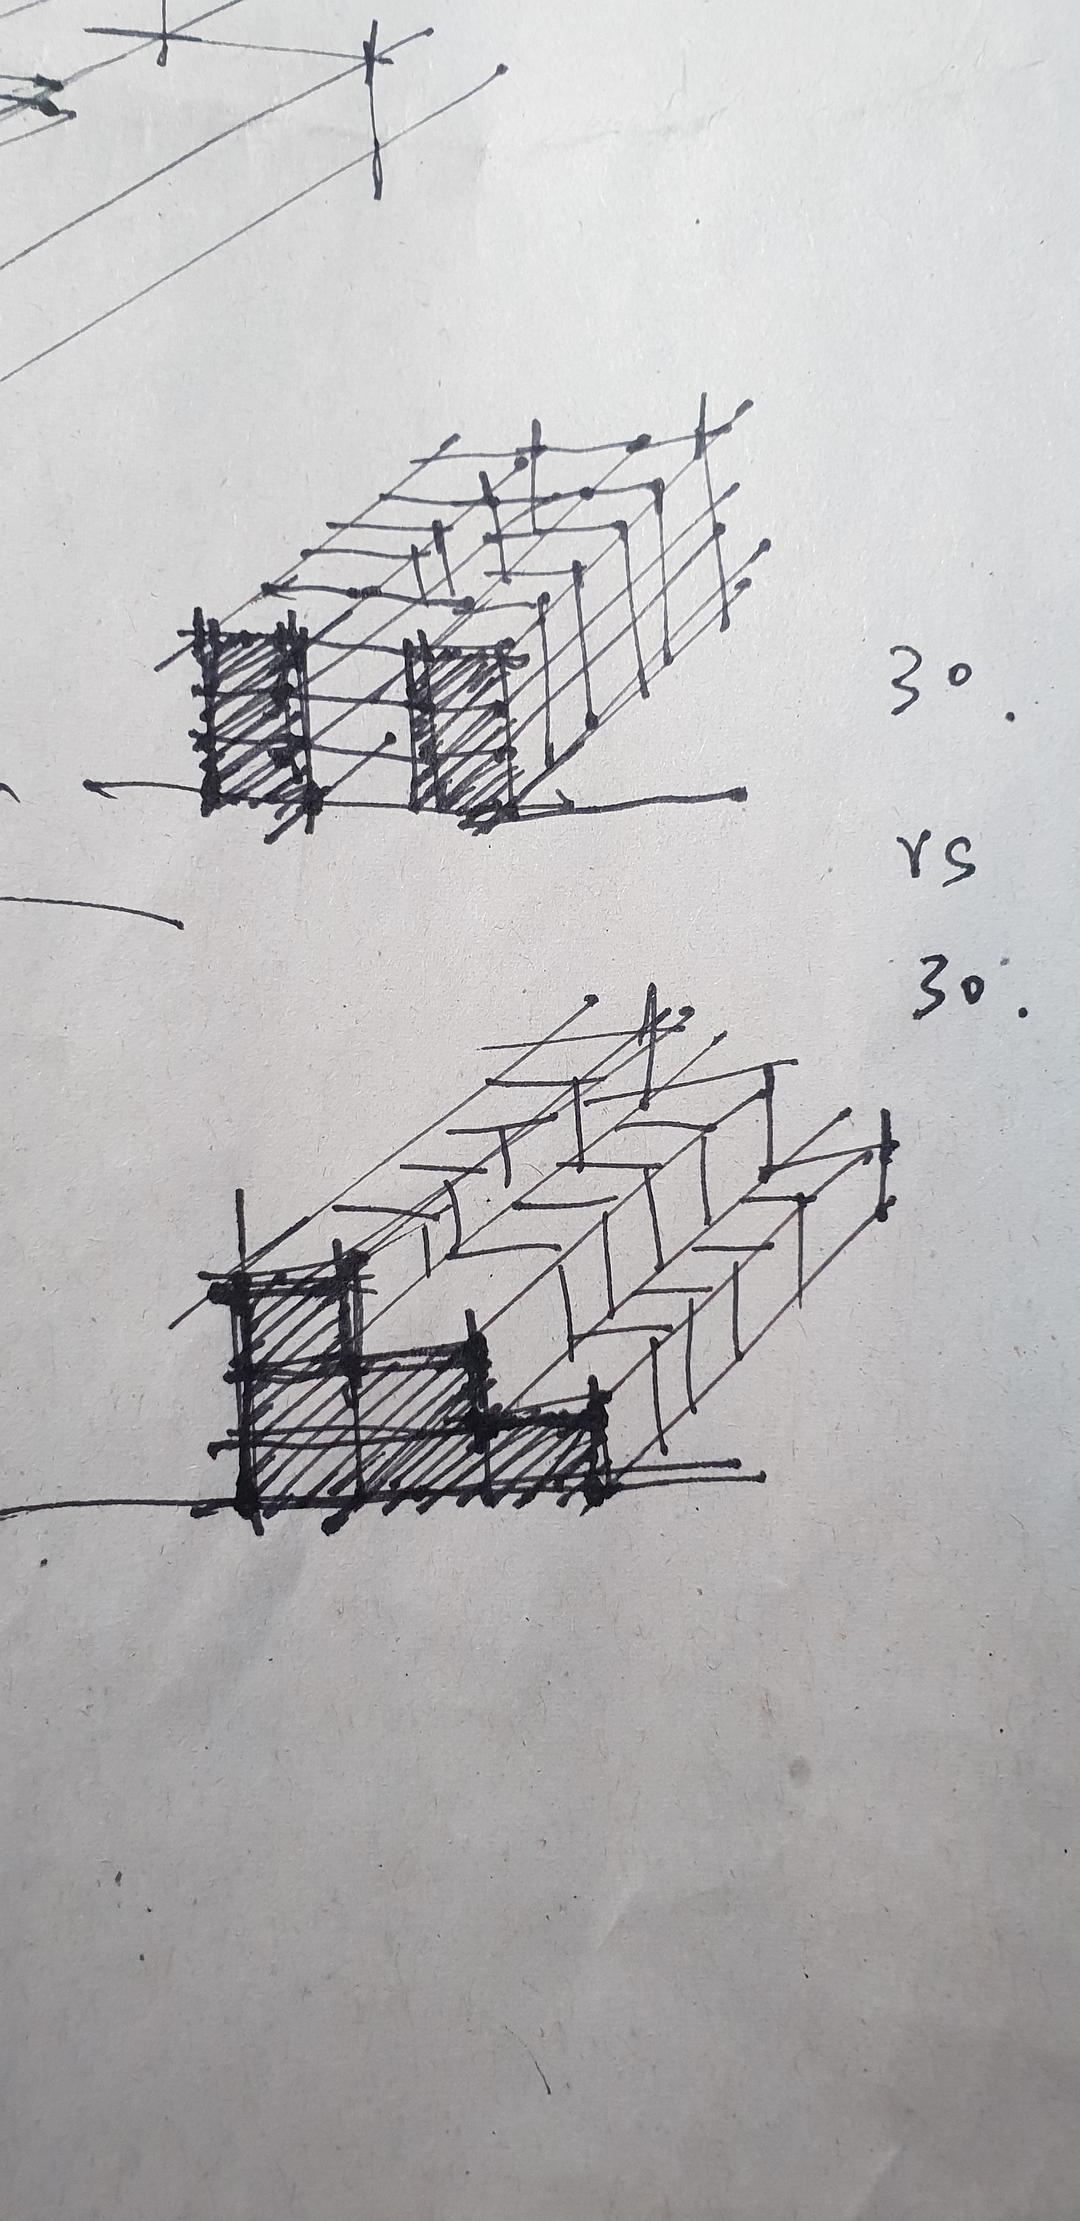 30.
vs
30.